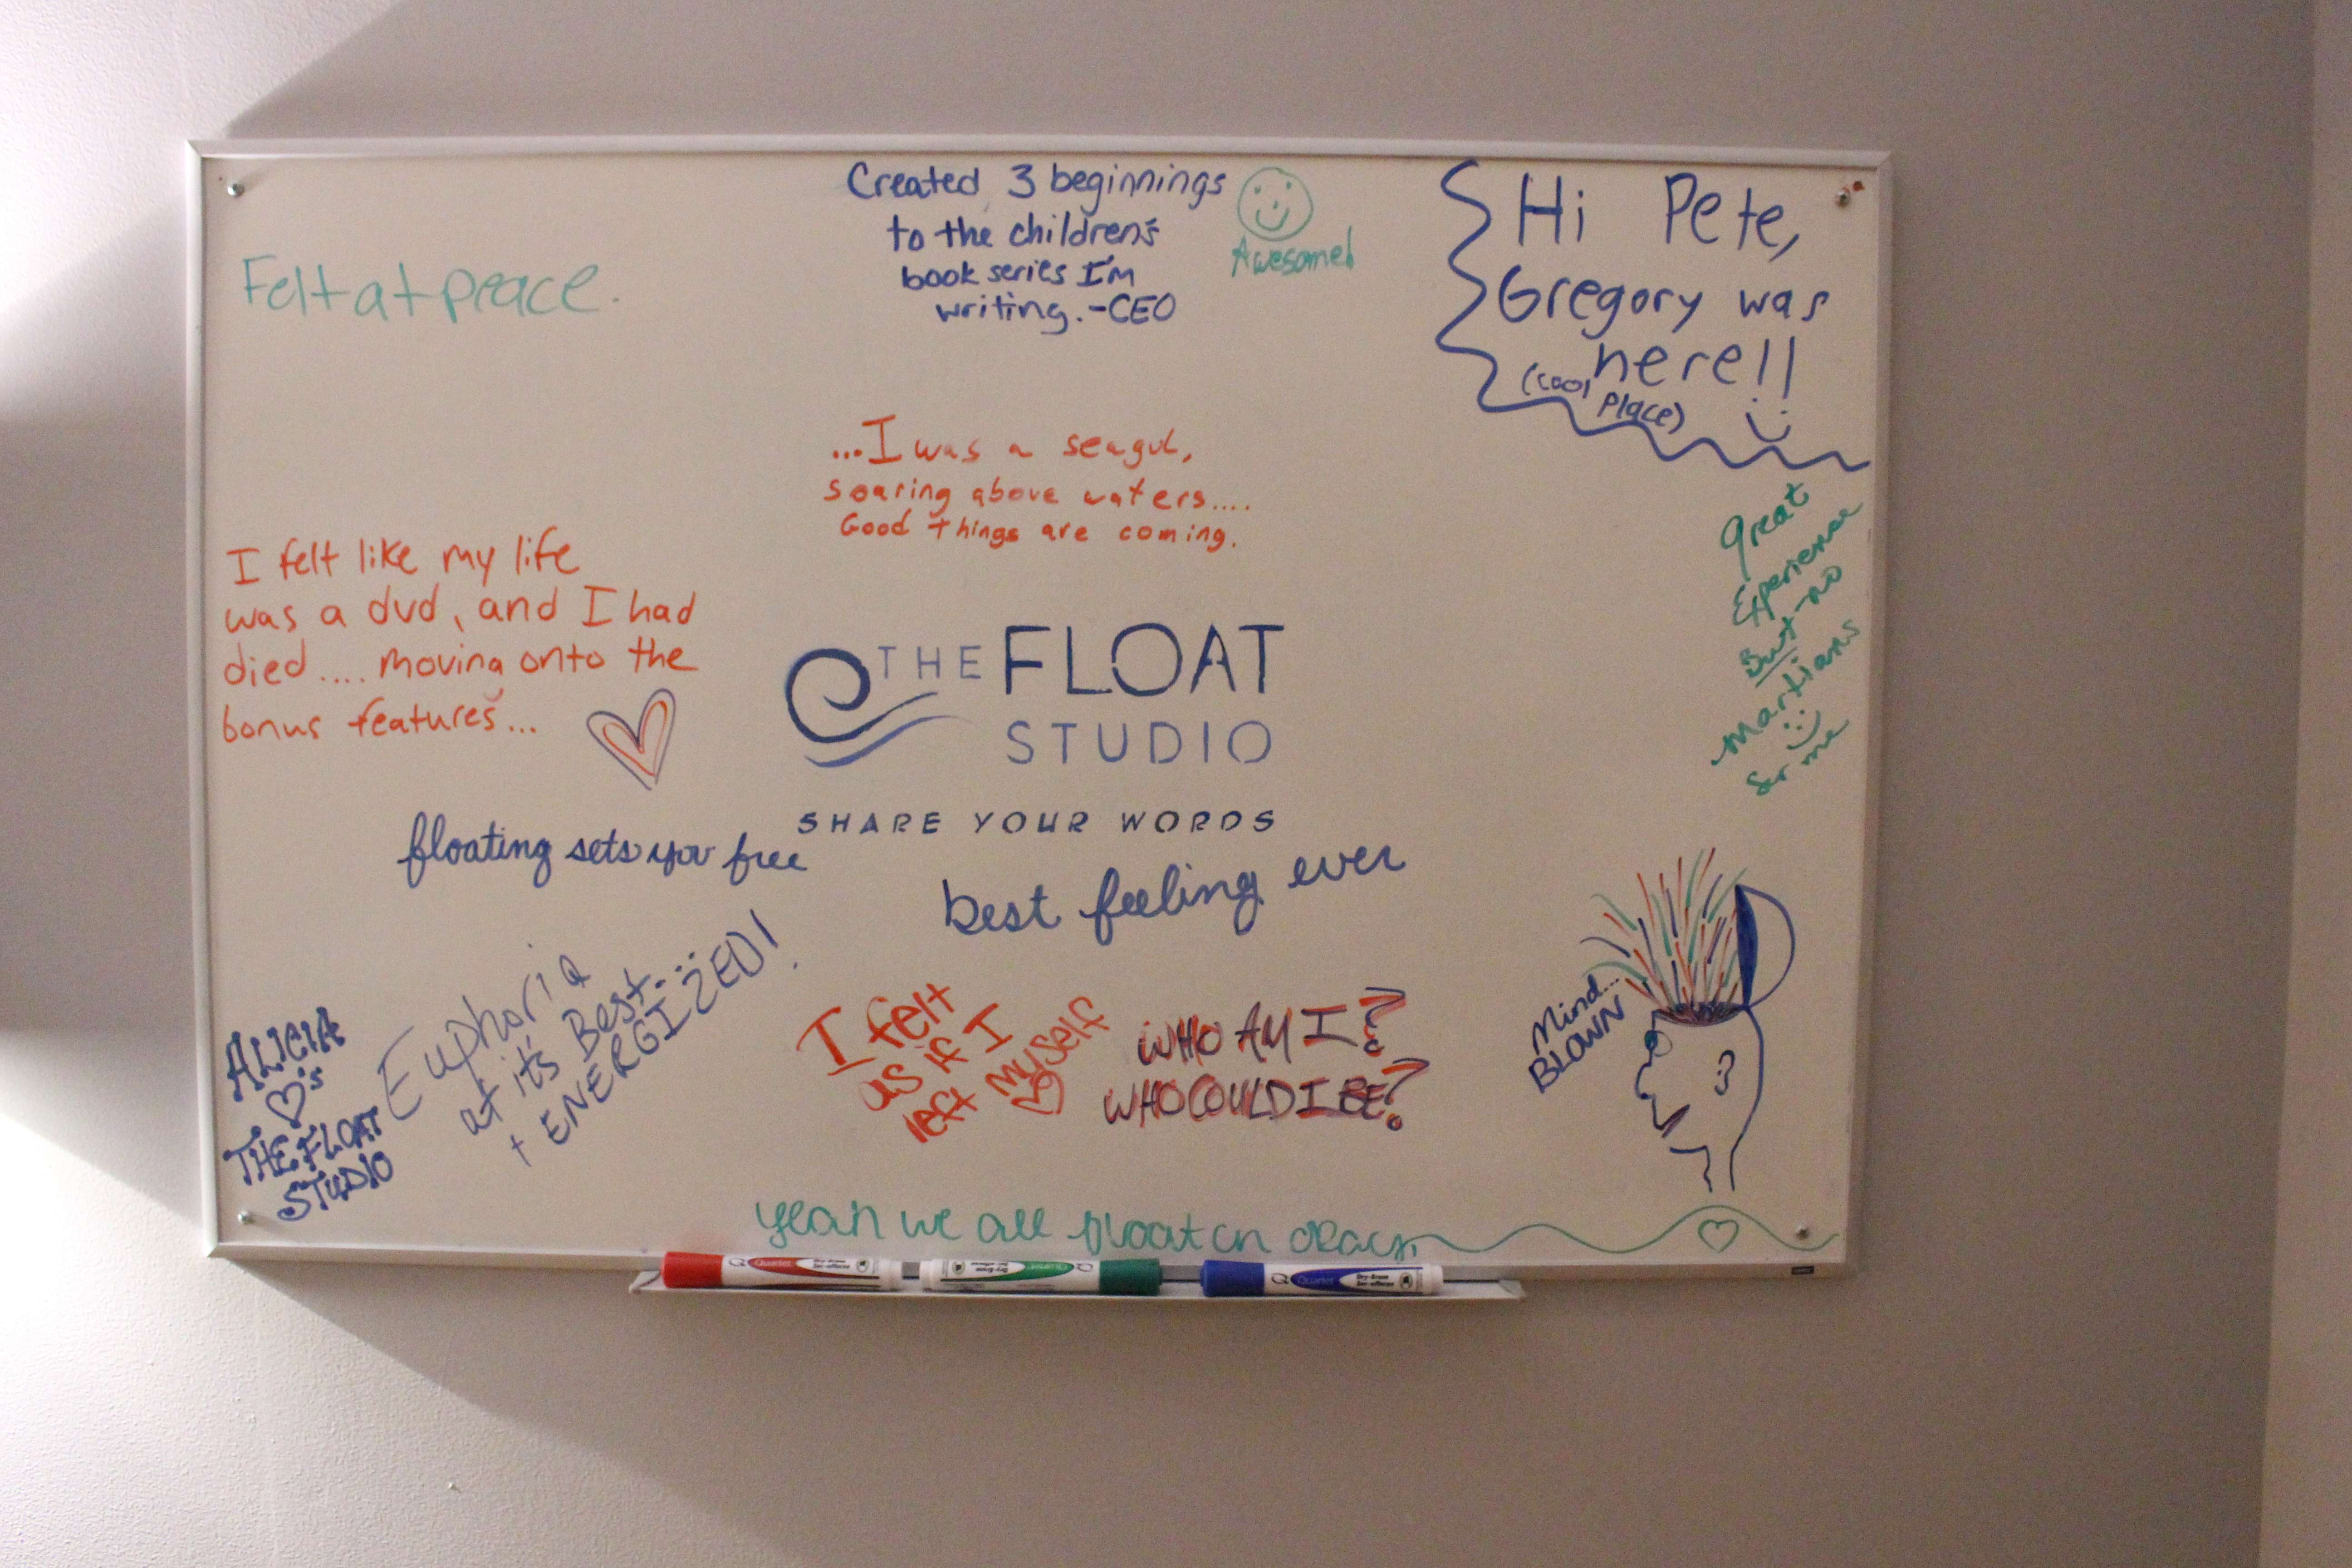 Felt at peace.
Created 3 beginnings
to the children's
book series I'm
writing. -CEO
Awesome!
Hi Pete,
Gregory was
here!!
(cool
place)
...I was a seagul,
soaring above waters....
Good things are coming.
Great
Experience
But-no
Martians
for me
I felt like my life
was a dvd, and I had
died.... moving onto the
bonus features...
THE FLOAT
STUDIO
SHARE YOUR WORDS
floating sets you free
best feeling ever
ALICIA
♡'s
THE FLOAT
STUDIO
Euphoria
at it's Best...
+ ENERGIZED!
I felt
as if I
left myself
WHO AM I?
WHO COULD I BE?
Mind...
BLOWN
yeah we all float on okay.
Quartet
Dry-Erase
Quartet
Quartet
Dry-Erase